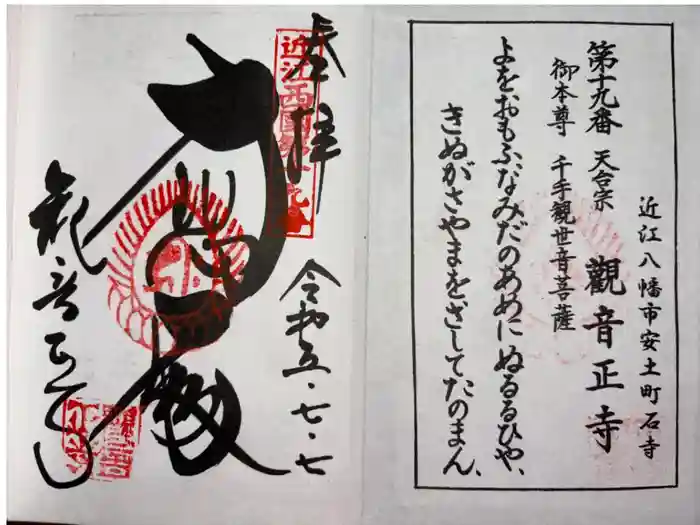 近江八幡市安土町石寺
第十九番 天台宗 觀音正寺
御本尊 千手観世音菩薩
よをおもふなみだのあめにぬるるひや、
きぬがさやまをざしてたのまん、
奉拝
令和五・七・七
大悲殿
観音正寺